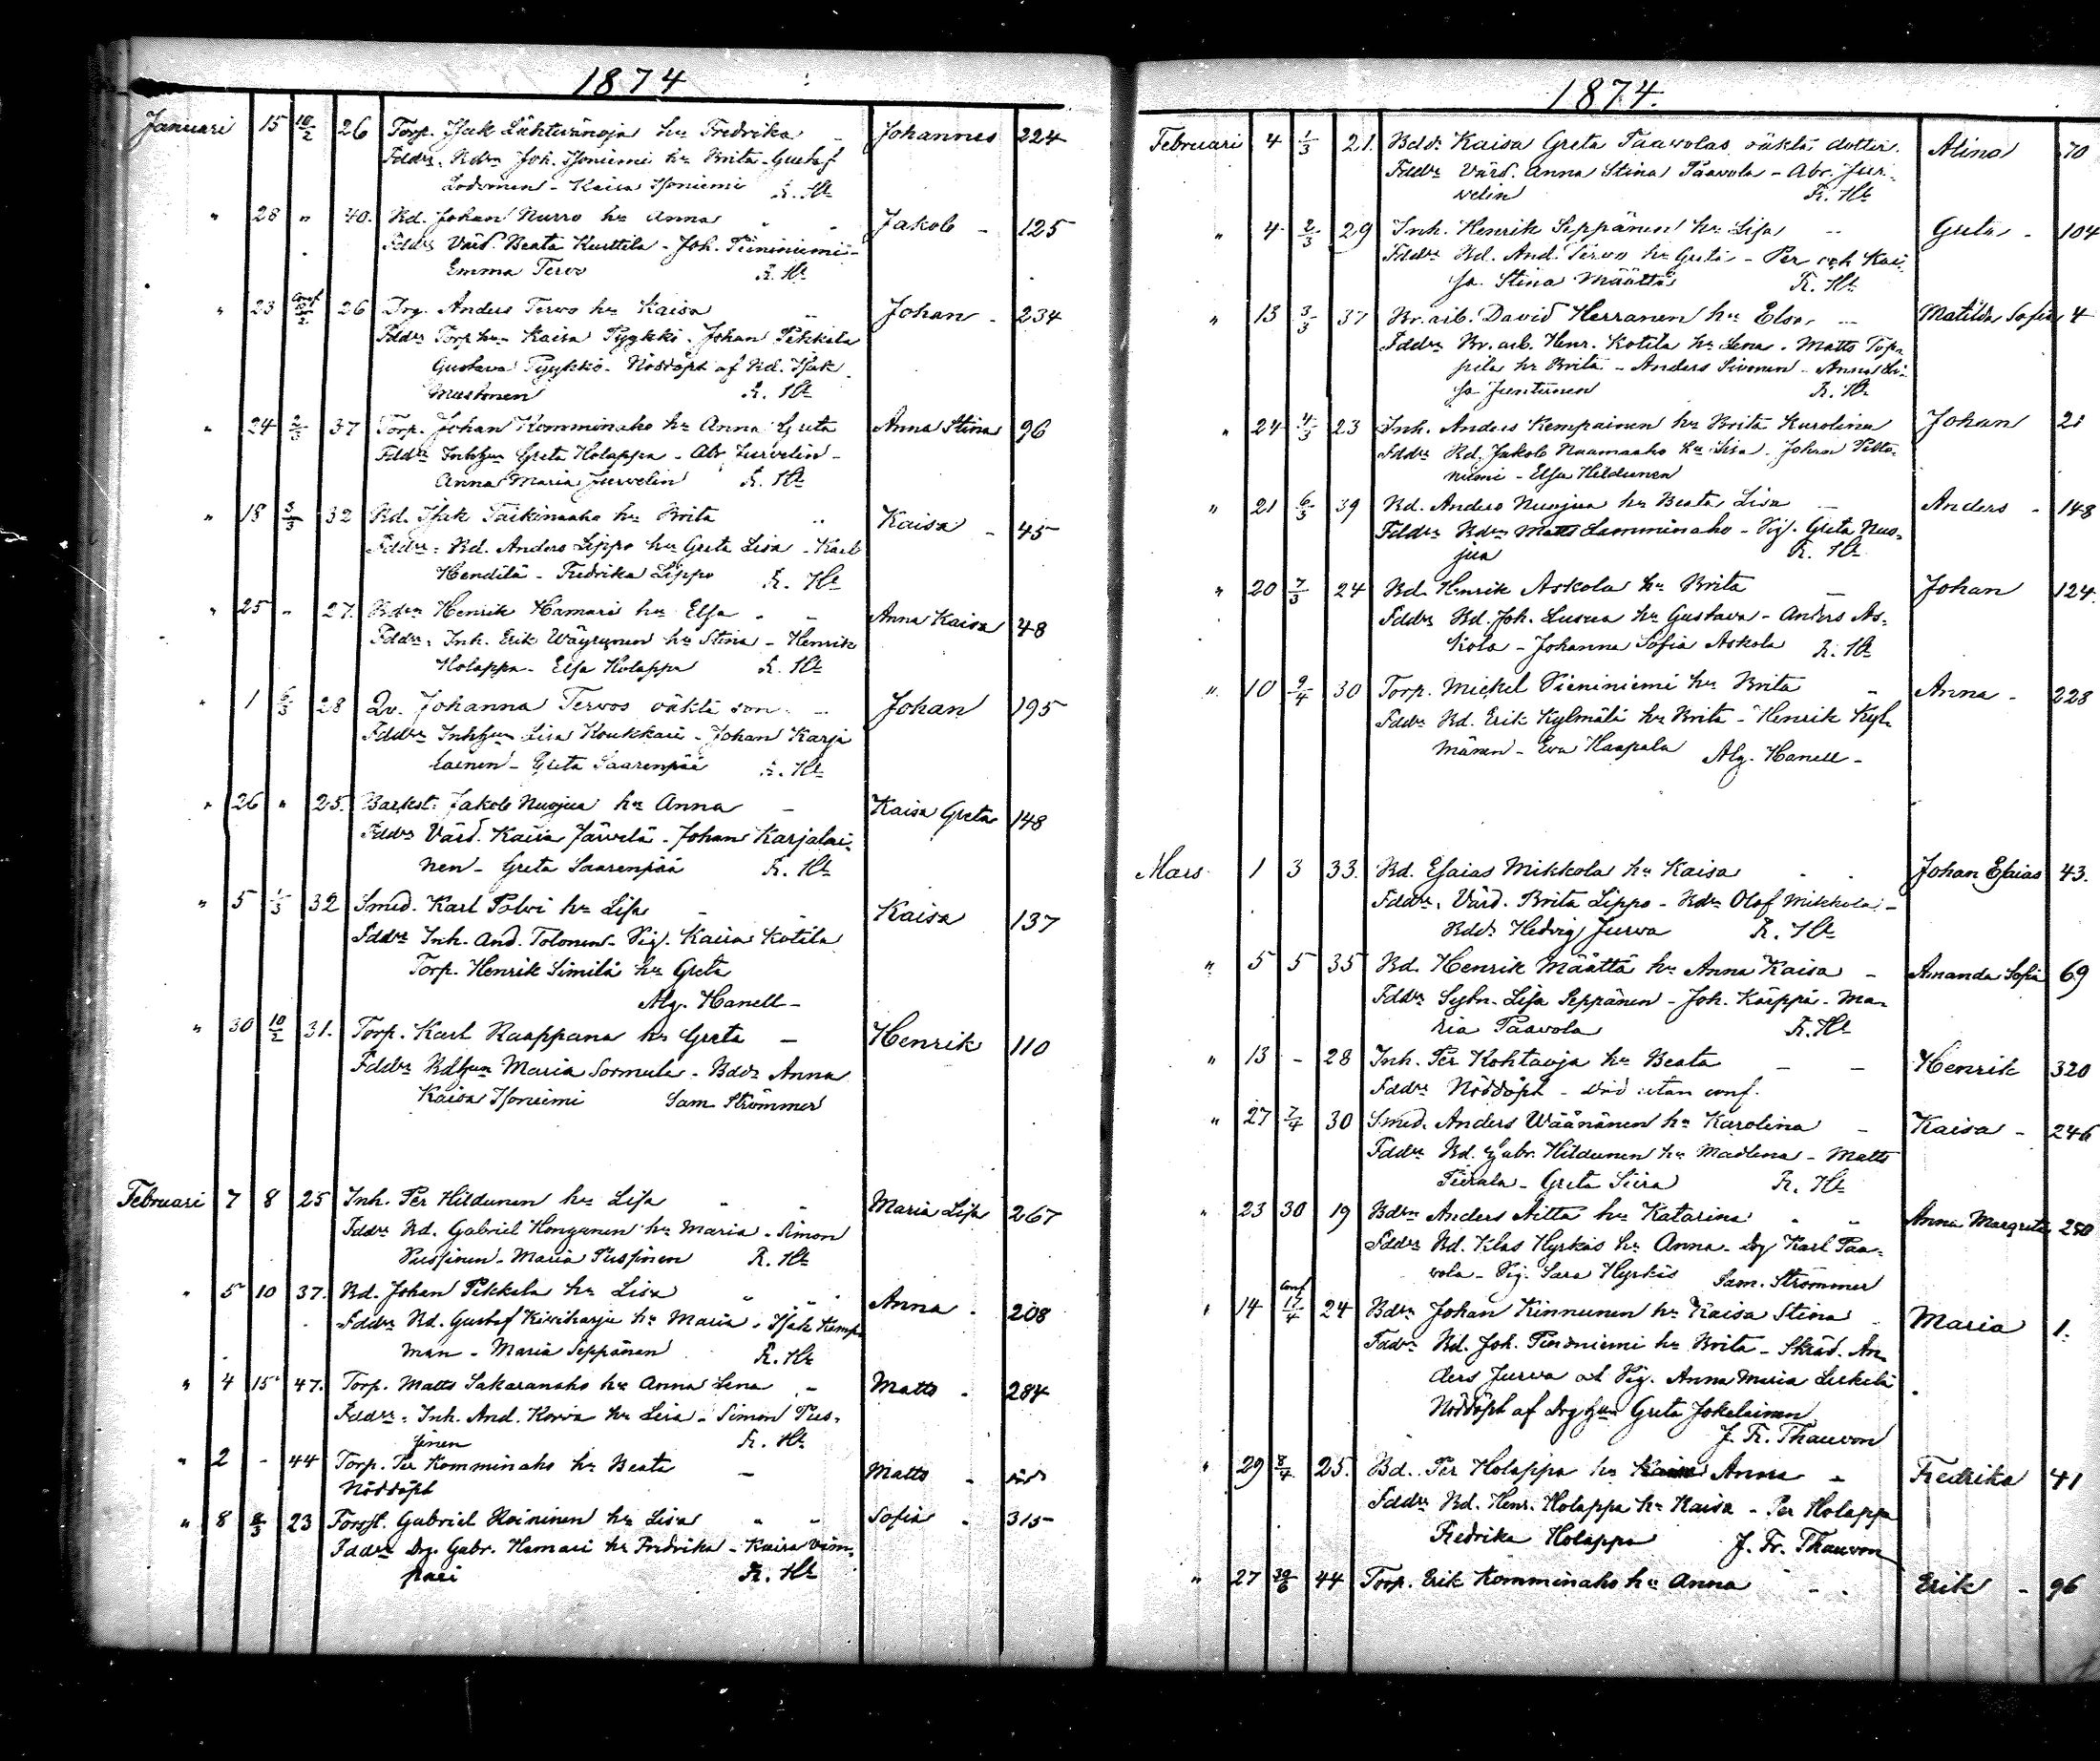 1874
Januari 15 10/2 26 Torp. Isak Lähtevänoja hu Fredrika Johannes 224
Fddr. Bdrn Joh. Isoniemi hu Brita - Gustaf
- Kaisa Isoniemi F. Hl
" 28 " 40. Bd. Johan Nurro hu Anna " Jakob - 125
Fddr Värd. Beata Kurttila - Joh. Pieniniemi -
Emma Tervo F. Hl
" 23 Conf 26 Drg. Anders Tervo hu Kaisa " Johan - 234
Fddr Torp hu Kaisa Pyykkö - Johan Pikkila
Gustava Pyykkö - Nöddöpt af Bd. Isak
Mustonen F. Hl
" 24 2/3 37 Torp. Johan Komminaho hu Anna Greta Anna Stina 96
Fddr Inhhun Greta Holappa - Abr Jurvelin -
Anna Maria Jurvelin F. Hl
" 18 3/3 32 Bd. Isak Taikinaaho hu Brita " Kaisa - 45
Fddr. Bd. Anders Lippo hu Greta Lisa - Karl
Hendilä - Fredrika Lippo F. Hl
" 25 " 27. Bdrn Henrik Hamari hu Elsa " " Anna Kaisa 48
Fddr. Inh. Erik Wäyrynen hu Stina - Henrik
Holappa - Elsa Holappa F. Hl
" 1 6/3 28 Qv. Johanna Tervos oäkta son - Johan 195
Fddr Inhhun Lisa Koukkari - Johan Karja
lainen - Greta Saarenpää F. Hl
" 26 " 25. Backst. Jakob Nuojua hu Anna - Kaisa Greta 148
Fddr Värd. Kaisa Järvelä - Johan Karjalai-
nen - Greta Saarenpää F. Hl
" 5 1/3 32 Smed. Karl Polvi hu Lisa - Kaisa 137
Fddr Inh. And. Tolonen - Pig. Kaisa Kotila
Torp. Henrik Similä hu Greta
Alg. Hanell -
" 30 10/2 31. Torp. Karl Raappana hu Greta - Henrik 110
Fddr Bdhun Maria Sormula - Bddr Anna
Kaisa Isoniemi Sam Strömmer
Februari 7 8 25 Inh. Per Hildunen hu Lisa " " Maria Lisa 267
Fddr Bd. Gabriel Honganen hu Maria - Simon
Pussinen - Maria Pussinen F. Hl
" 5 10 37. Bd. Johan Pikkila hu Lisa " Anna - 208
Fddr Bd. Gustaf Kiviharju hu Maria - Isak Kemp
man - Maria Seppänen F. Hl
" 4 15 47. Torp. Matts Sakaranaho hu Anna Lena - Matts - 284
Fddr. Inh. And. Korva hu Lisa - Simon Pus-
sinen F. Hl
" 2 - 44 Torp. Per Komminaho hu Beata - Matts - död
Nöddöpt
" 8 8/3 23 Forst. Gabriel Roininen hu Lisa " " Sofia - 315
Fddr Drg. Gabr. Hamari hu Fredrika - Kaisa Vim-
pari F. Hl
1874.
Februari 4 1/3 21. Bddr Kaisa Greta Paavolas oäkta dotter. Alina 70
Fddr Värd. Anna Stina Paavola - Abr. Jur-
velin F. Hl
" 4 2/3 29 Inh. Henrik Seppänen hu Lisa - Greta - 104
Fddr Bd. And. Tervo hu Greta - Per och Kai-
sa Stina Määttä F. Hl
" 13 3/3 37 Br. arb. David Herranen hu Elsa - Matilda Sofia 4
Fddr Br. arb. Henr. Kotila hu Lena - Matts Top-
pila hu Brita - Anders Sivonen - Anna Li-
sa Juntunen F. Hl
" 24 4/3 23 Inh. Anders Kempainen hu Brita Karolina Johan 21
Fddr Bd. Jakob Naamaaho hu Lisa - Johan Pelto-
niemi - Elsa Hildunen
" 21 6/3 39 Bd. Anders Nuojua hu Beata Lisa - Anders - 148
Fddr Bdrn Matts Lamminaho - Pig. Greta Nuo-
jua F. Hl
" 20 7/3 24 Bd. Henrik Askola hu Brita - Johan 124.
Fddr Bd. Joh. Lusua hu Gustava - Anders As-
kola - Johanna Sofia Askola F. Hl
" 10 9/4 30 Torp. Mickel Pieniniemi hu Brita - Anna - 228
Fddr Bd. Erik Kylmälä hu Brita - Henrik Kyl-
mänen - Eva Haapala Alg. Hanell -
Mars 1 3 33. Bd. Esaias Mikkola hu Kaisa - Johan Esaias 43.
Fddr. Värd. Brita Lippo - Bdrn Olof Mikkola -
Bddr Hedvig Jurva F. Hl
" 5 5 35 Bd. Henrik Määttä hu Anna Kaisa - Amanda Sofia 69
Fddr Lisa Seppänen - Joh. Käippä - Ma-
ria Paavola F. Hl
" 13 - 28 Inh. Per Kohtaoja hu Beata - - Henrik 320
Fddr Nöddöpt - död utan conf.
" 27 7/4 30 Smed. Anders Wäänänen hu Karolina - Kaisa - 246
Fddr Bd. Gabr. Hildunen hu Madlena - Matts
Pierala - Greta Siira F. Hl
" 23 30 19 Bdrn Anders Aitta hu Katarina " " Anna Margreta 250
Fddr Bd. Klas Hyrkäs hu Anna - Drg Karl Paa-
vola - Pig. Sara Hyrkäs Sam. Strömmer
" 14 Conf 17/4 24 Bdrn Johan Kinnunen hu Kaisa Stina Maria 1.
Fddr Bd. Joh. Pieniniemi hu Brita - Skräd. An-
ders Jurva och Pig. Anna Maria Leskelä
Nöddöpt af Drghun Greta Jokelainen
J. Fr. Thauvon
" 29 8/4 25. Bd. Per Holappa hu Anna - Fredrika 41
Fddr Bd. Henr. Holappa hu Kaisa - Per Holappa
Fredrika Holappa J. Fr. Thauvon
" 27 29/6 44 Torp. Erik Komminaho hu Anna - - Erik - 96